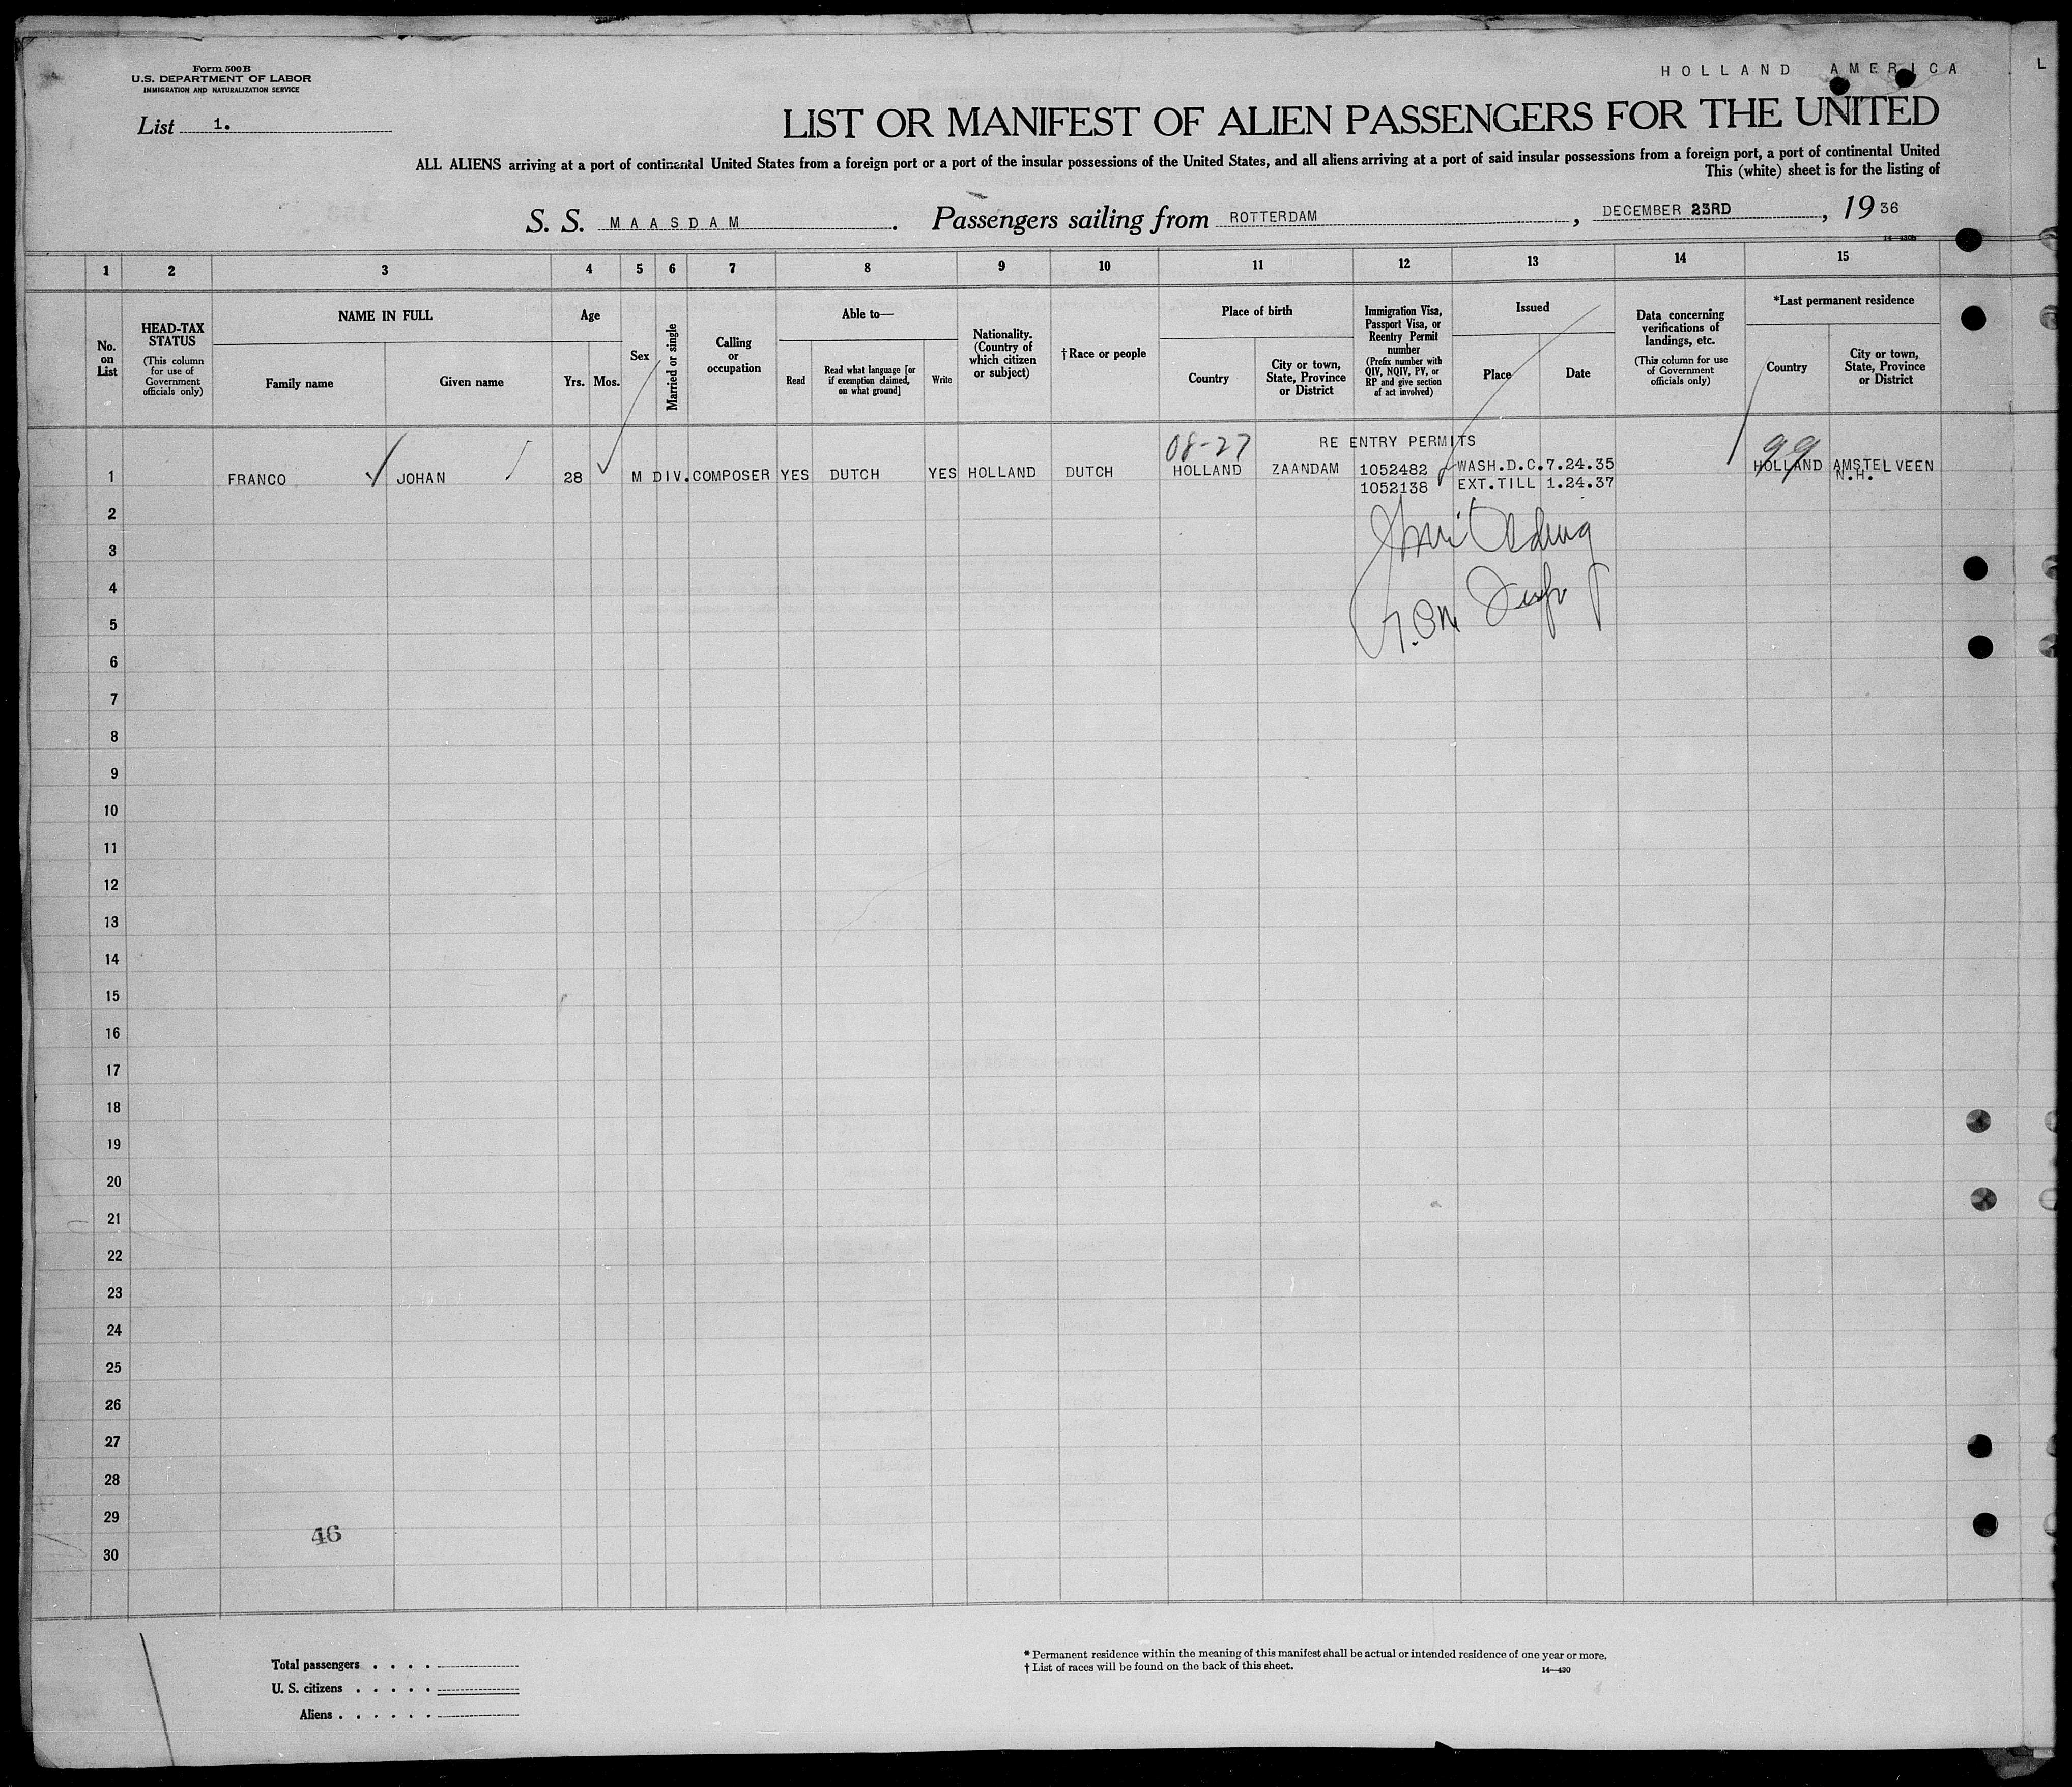 Form 500 B
U.S. DEPARTMENT OF LABOR
IMMIGRATION AND NATURALIZATION SERVICE
HOLLAND AMERICA L
List 1.
LIST OR MANIFEST OF ALIEN PASSENGERS FOR THE UNITED
ALL ALIENS arriving at a port of continental United States from a foreign port or a port of the insular possessions of the United States, and all aliens arriving at a port of said insular possessions from a foreign port, a port of continental United
This (white) sheet is for the listing of
S. S. MAASDAM. Passengers sailing from ROTTERDAM, DECEMBER 23RD, 1936
14—430B
1 2 3 4 5 6 7 8 9 10 11 12 13 14 15
No. on List
HEAD-TAX STATUS
(This column for use of Government officials only)
NAME IN FULL
Family name
Given name
Age
Yrs. Mos.
Sex
Married or single
Calling or occupation
Able to—
Read
Read what language [or if exemption claimed, on what ground]
Write
Nationality. (Country of which citizen or subject)
†Race or people
Place of birth
Country
City or town, State, Province or District
Immigration Visa, Passport Visa, or Reentry Permit number
(Prefix number with QIV, NQIV, PV, or RP and give section of act involved)
Issued
Place
Date
Data concerning verifications of landings, etc.
(This column for use of Government officials only)
*Last permanent residence
Country
City or town, State, Province or District
08-27 RE ENTRY PERMITS 99
1 FRANCO JOHAN 28 M DIV. COMPOSER YES DUTCH YES HOLLAND DUTCH HOLLAND ZAANDAM 1052482 WASH.D.C. 7.24.35 HOLLAND AMSTELVEEN
1052138 EXT.TILL 1.24.37 N.H.
2
3
4
5
6
7
8
9
10
11
12
13
14
15
16
17
18
19
20
21
22
23
24
25
26
27
28
29
46
30
Total passengers . . . .
U. S. citizens . . . . .
Aliens . . . . . .
* Permanent residence within the meaning of this manifest shall be actual or intended residence of one year or more.
† List of races will be found on the back of this sheet.
14—430